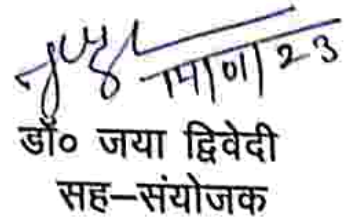 14/01/23
डॉ० जया द्विवेदी
सह-संयोजक